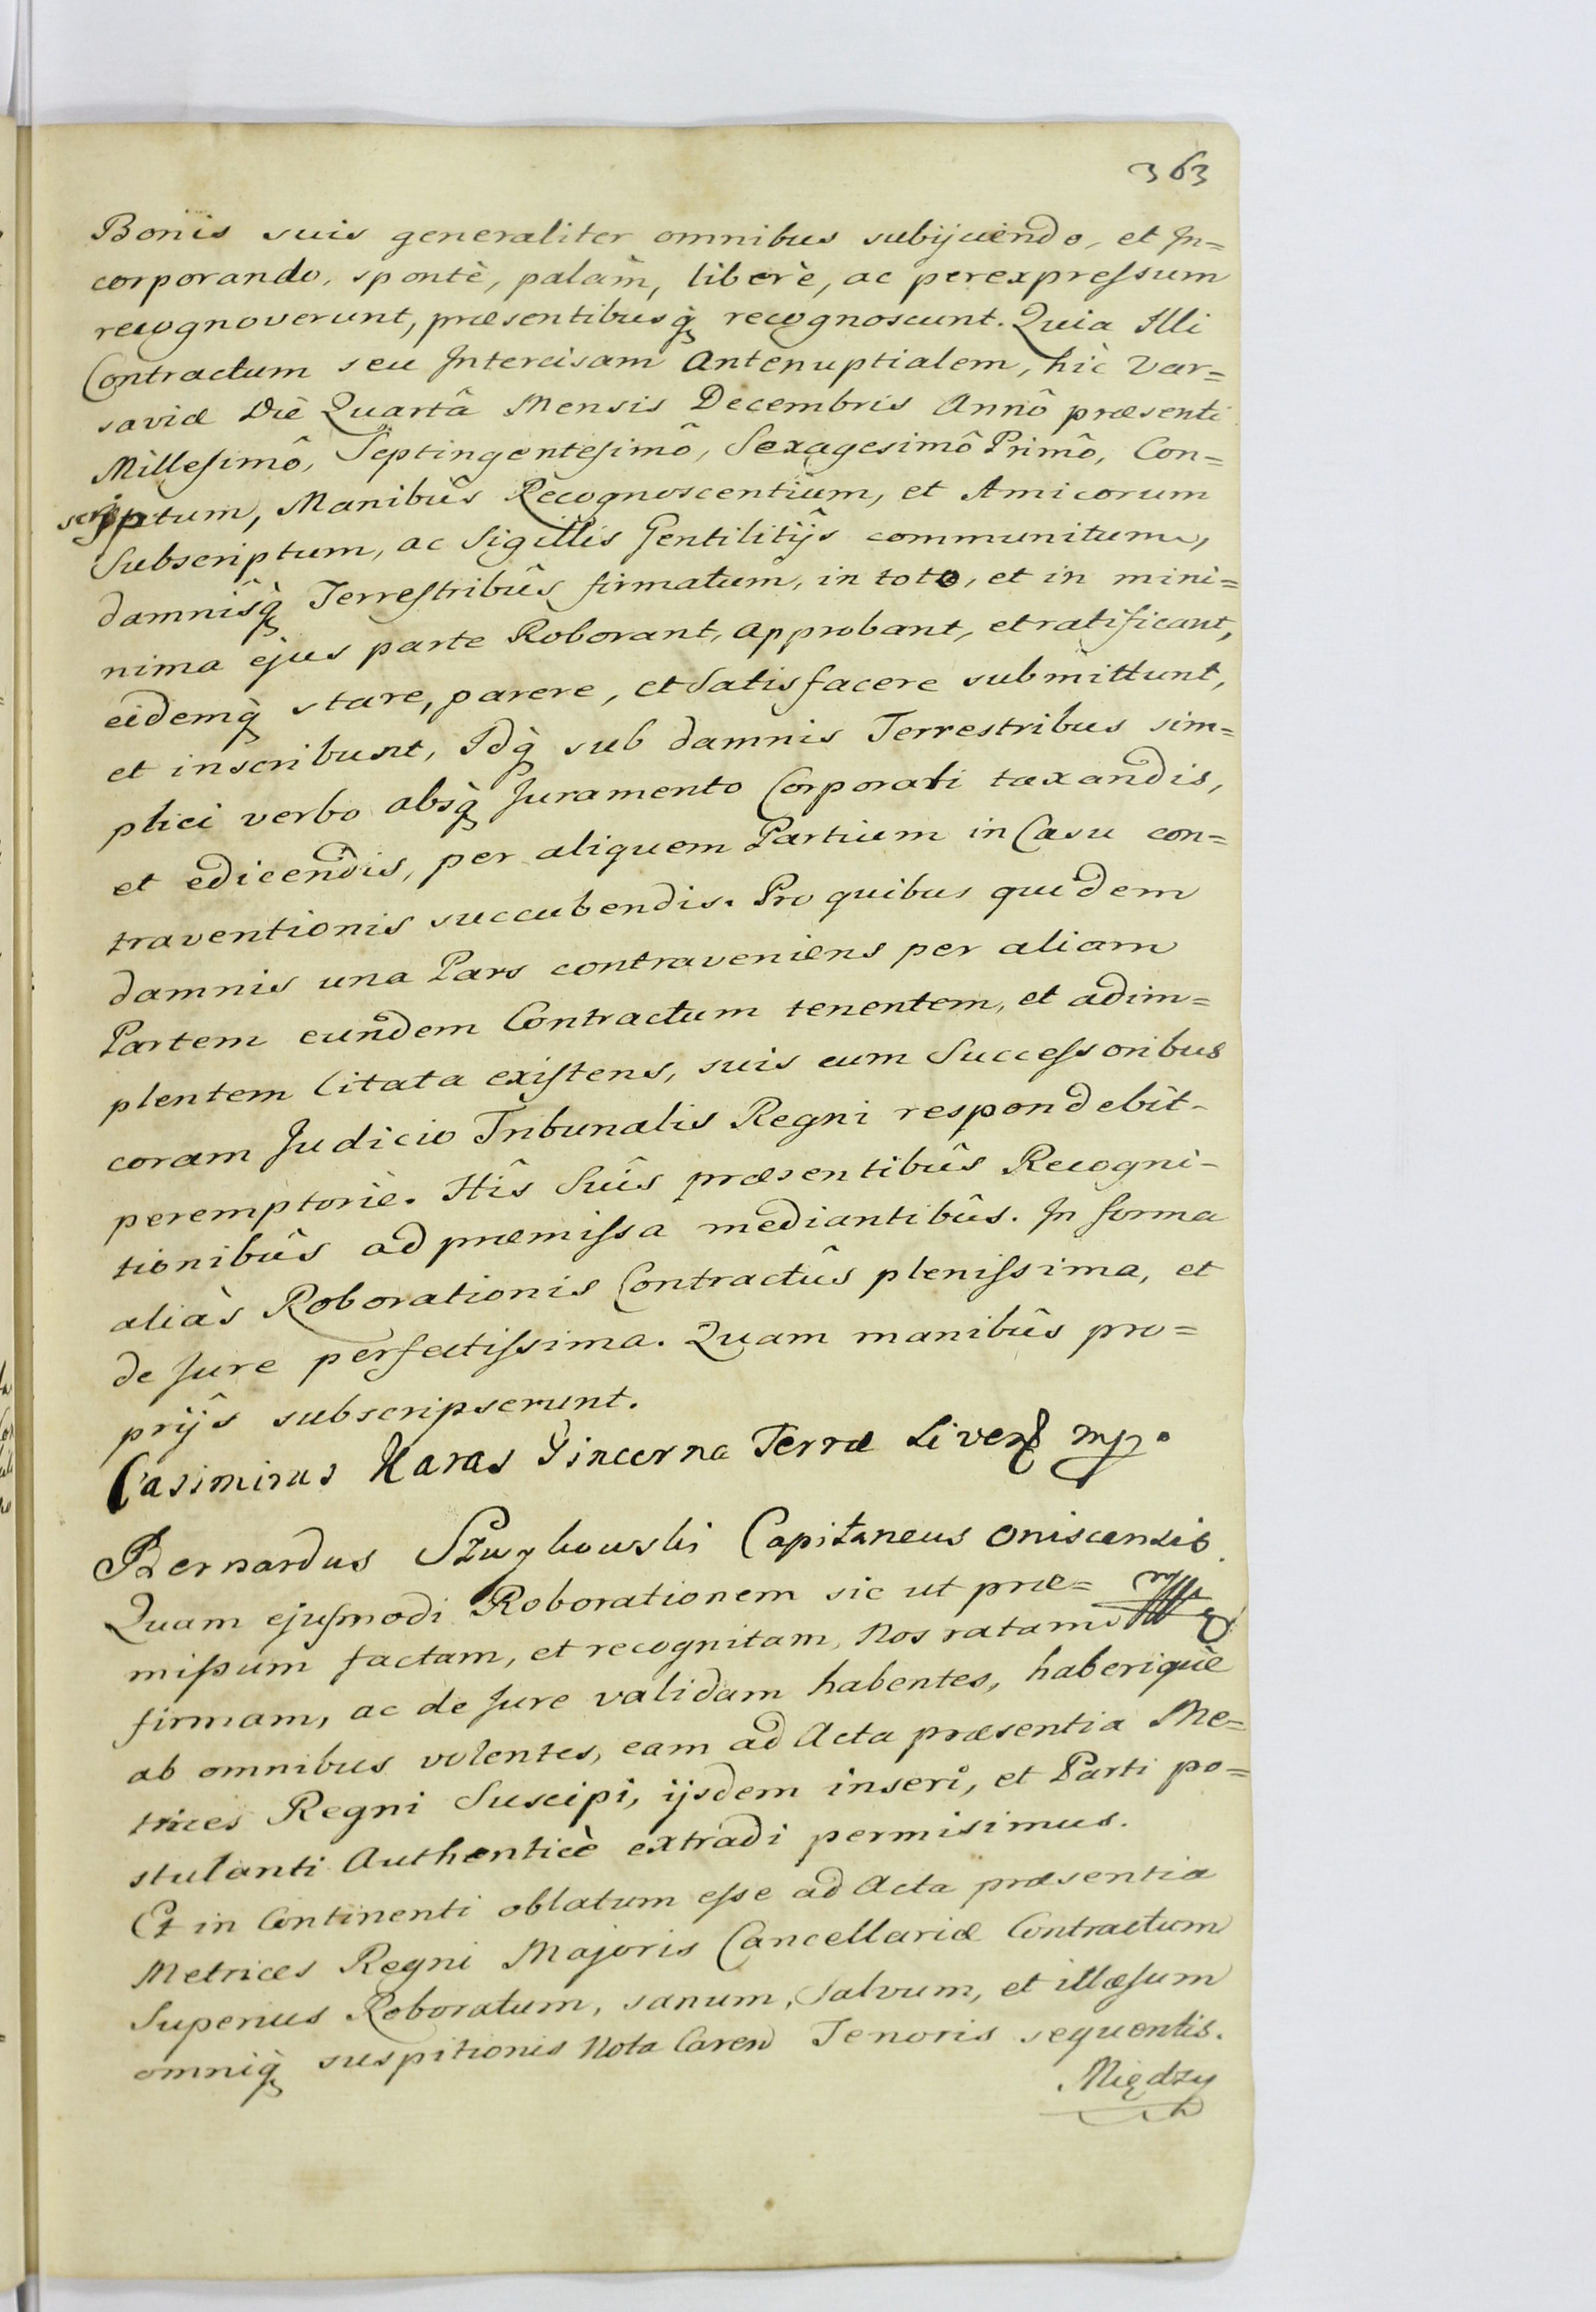 363
Bonis suis generaliter omnibus subijciendo, et In=
corporando, spontè, palam, liberè, ac per expressum
recognoverunt, præsentibusq̀ recognoscunt. Quia Illi
Contractum seu Intercisam Antenuptialem, hic Var=
saviæ Die Quartâ Mensis Decembris Annô præsenti
Millesimô, Septingentesimô, Sexagesimô Primô, Con=
scriptum, Manibûs Recognoscentium, et Amicorum
Subscriptum, ac Sigillis Gentilitijs communitum,
damnisq̀ Terrestribûs firmatum, in toto, et in mini=
nima ejus parte Roborant, approbant, et ratificant,
eidemq̀ stare, parere, et Satisfacere submittunt,
et inscribunt, Idq̀ sub damnis Terrestribus sim=
plici verbo absq̀ Juramento Corporali taxandis,
et edicendis, per aliquem Partium in Casu con=
traventionis succubendis. Pro quibus quidem
damnis una Pars contraveniens per aliam
Partem eundem Contractum tenentem, et adim=
plentem Citata existens, suis cum Successoribus
coram Judicio Tribunalis Regni respondebit
peremptoriè. Hîs Suîs præsentibûs Recogni-
tionibûs ad præmissa mediantibûs. In forma
aliàs Roborationis Contractûs plenissima, et
de Jure perfectissima. Quam manibûs pro=
prijs subscripserunt.
Casimirus Karas Pincerna Terræ Livens mp.
Bernardus Szuykowski Capitaneus Oniscensis
Quam ejusmodi Roborationem sic ut præ= mp
missum factam, et recognitam, Nos ratam
firmam, ac de Jure validam habentes, haberique
ab omnibus volentes, eam ad Acta præsentia Me=
trices Regni Suscipi, ijsdem inseri, et Parti po=
stulanti Authenticè extradi permisimus.
Et in Continenti oblatum esse ad Acta præsentia
Metrices Regni Majoris Cancellariæ Contractum
Superius Roboratum, sanum, Salvum, et illæsum
omniq̀ suspitionis Nota Caren Tenoris sequentis.
Między